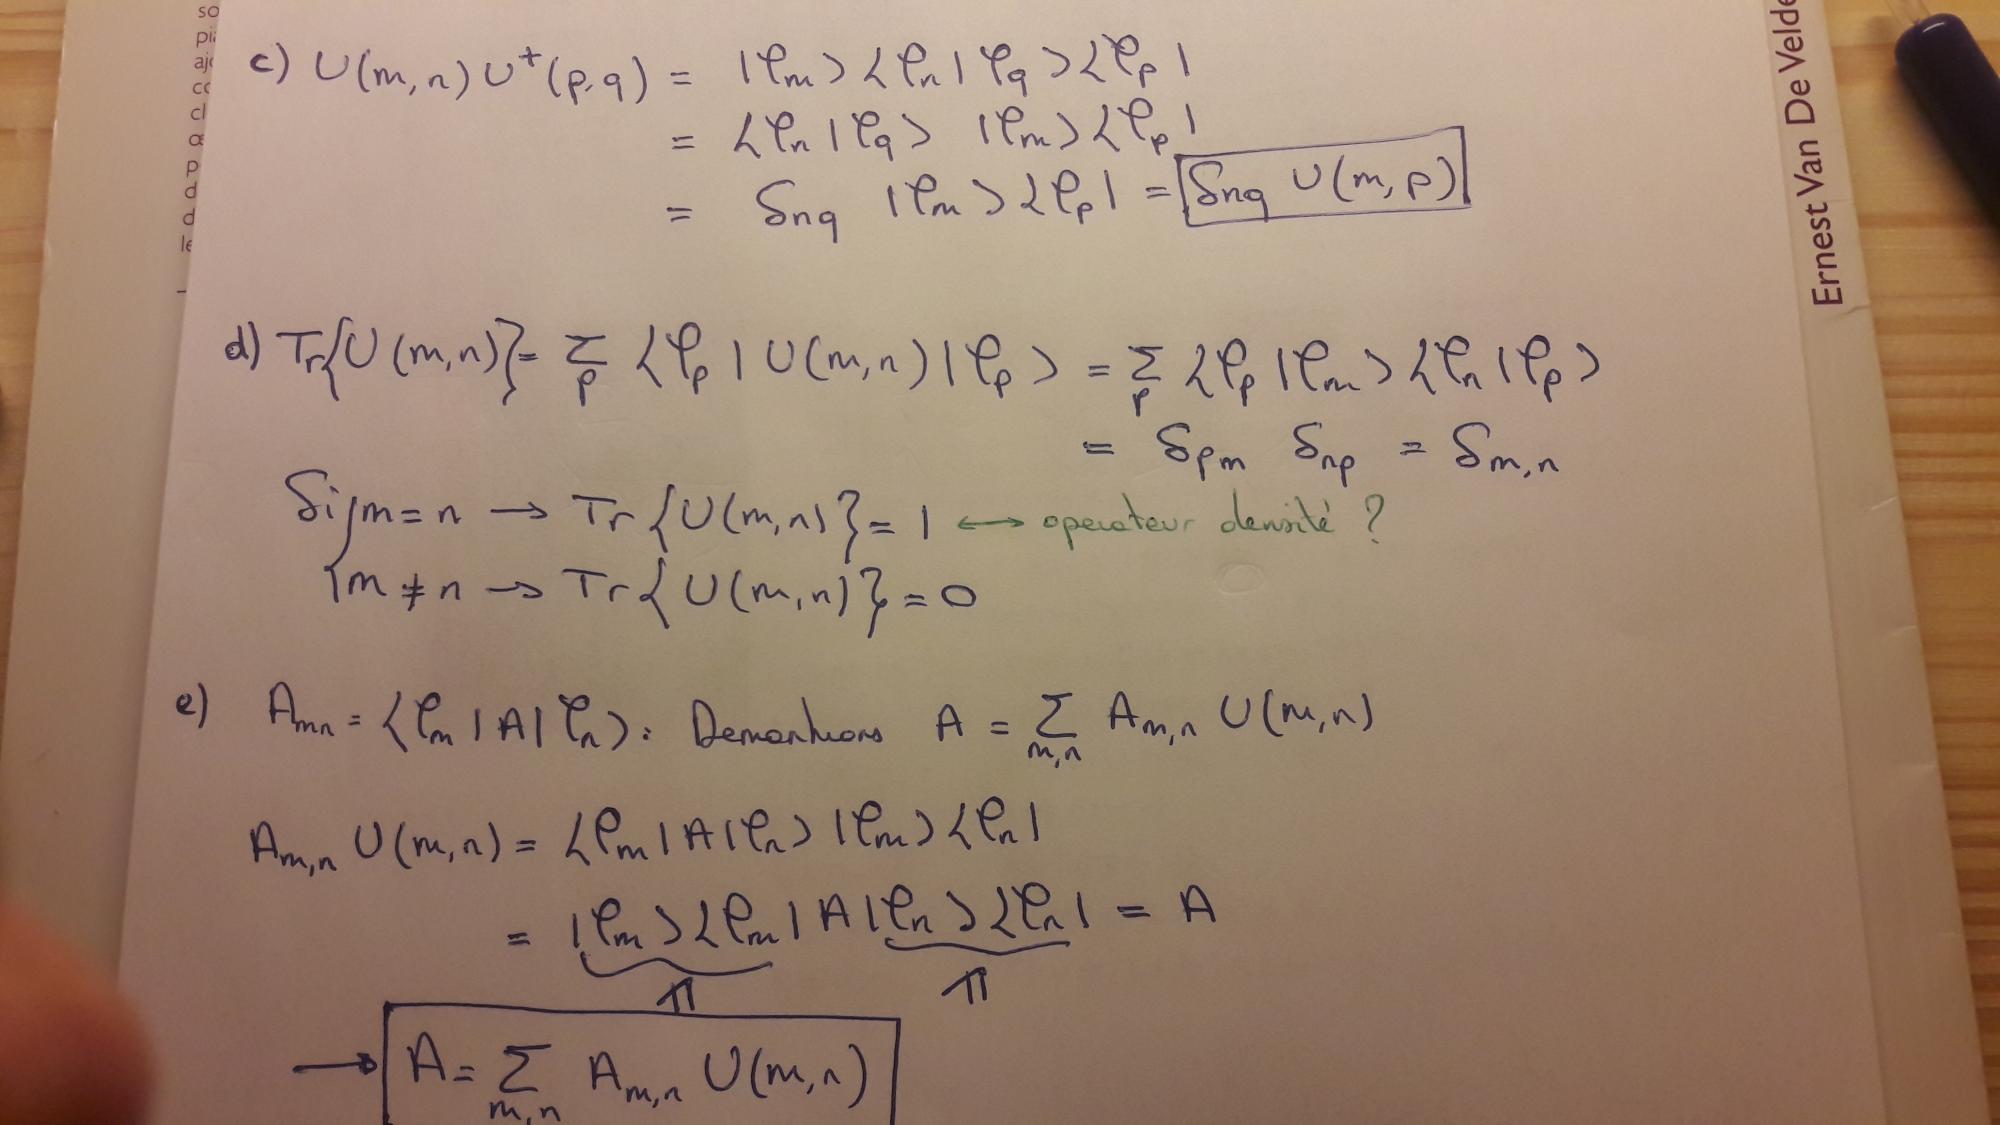 so
pi
ajo
co
cl
œ
p
d
d
le
c) U(m,n) U⁺(p,q) = |φm><φn|φq><φp|
= <φn|φq> |φm><φp|
= δnq |φm><φp| = δnq U(m,p)
d) Tr{U(m,n)} = Σp <φp|U(m,n)|φp> = Σp <φp|φm><φn|φp>
= δpm δnp = δm,n
Si { m = n → Tr{U(m,n)} = 1 ↔ operateur densité ?
m ≠ n → Tr{U(m,n)} = 0
e) Amn = <φm|A|φn> : Demontrons A = Σm,n Am,n U(m,n)
Am,n U(m,n) = <φm|A|φn> |φm><φn|
= |φm><φm|A|φn><φn| = A
𝟙 𝟙
→ A = Σm,n Am,n U(m,n)
Ernest Van De Velde